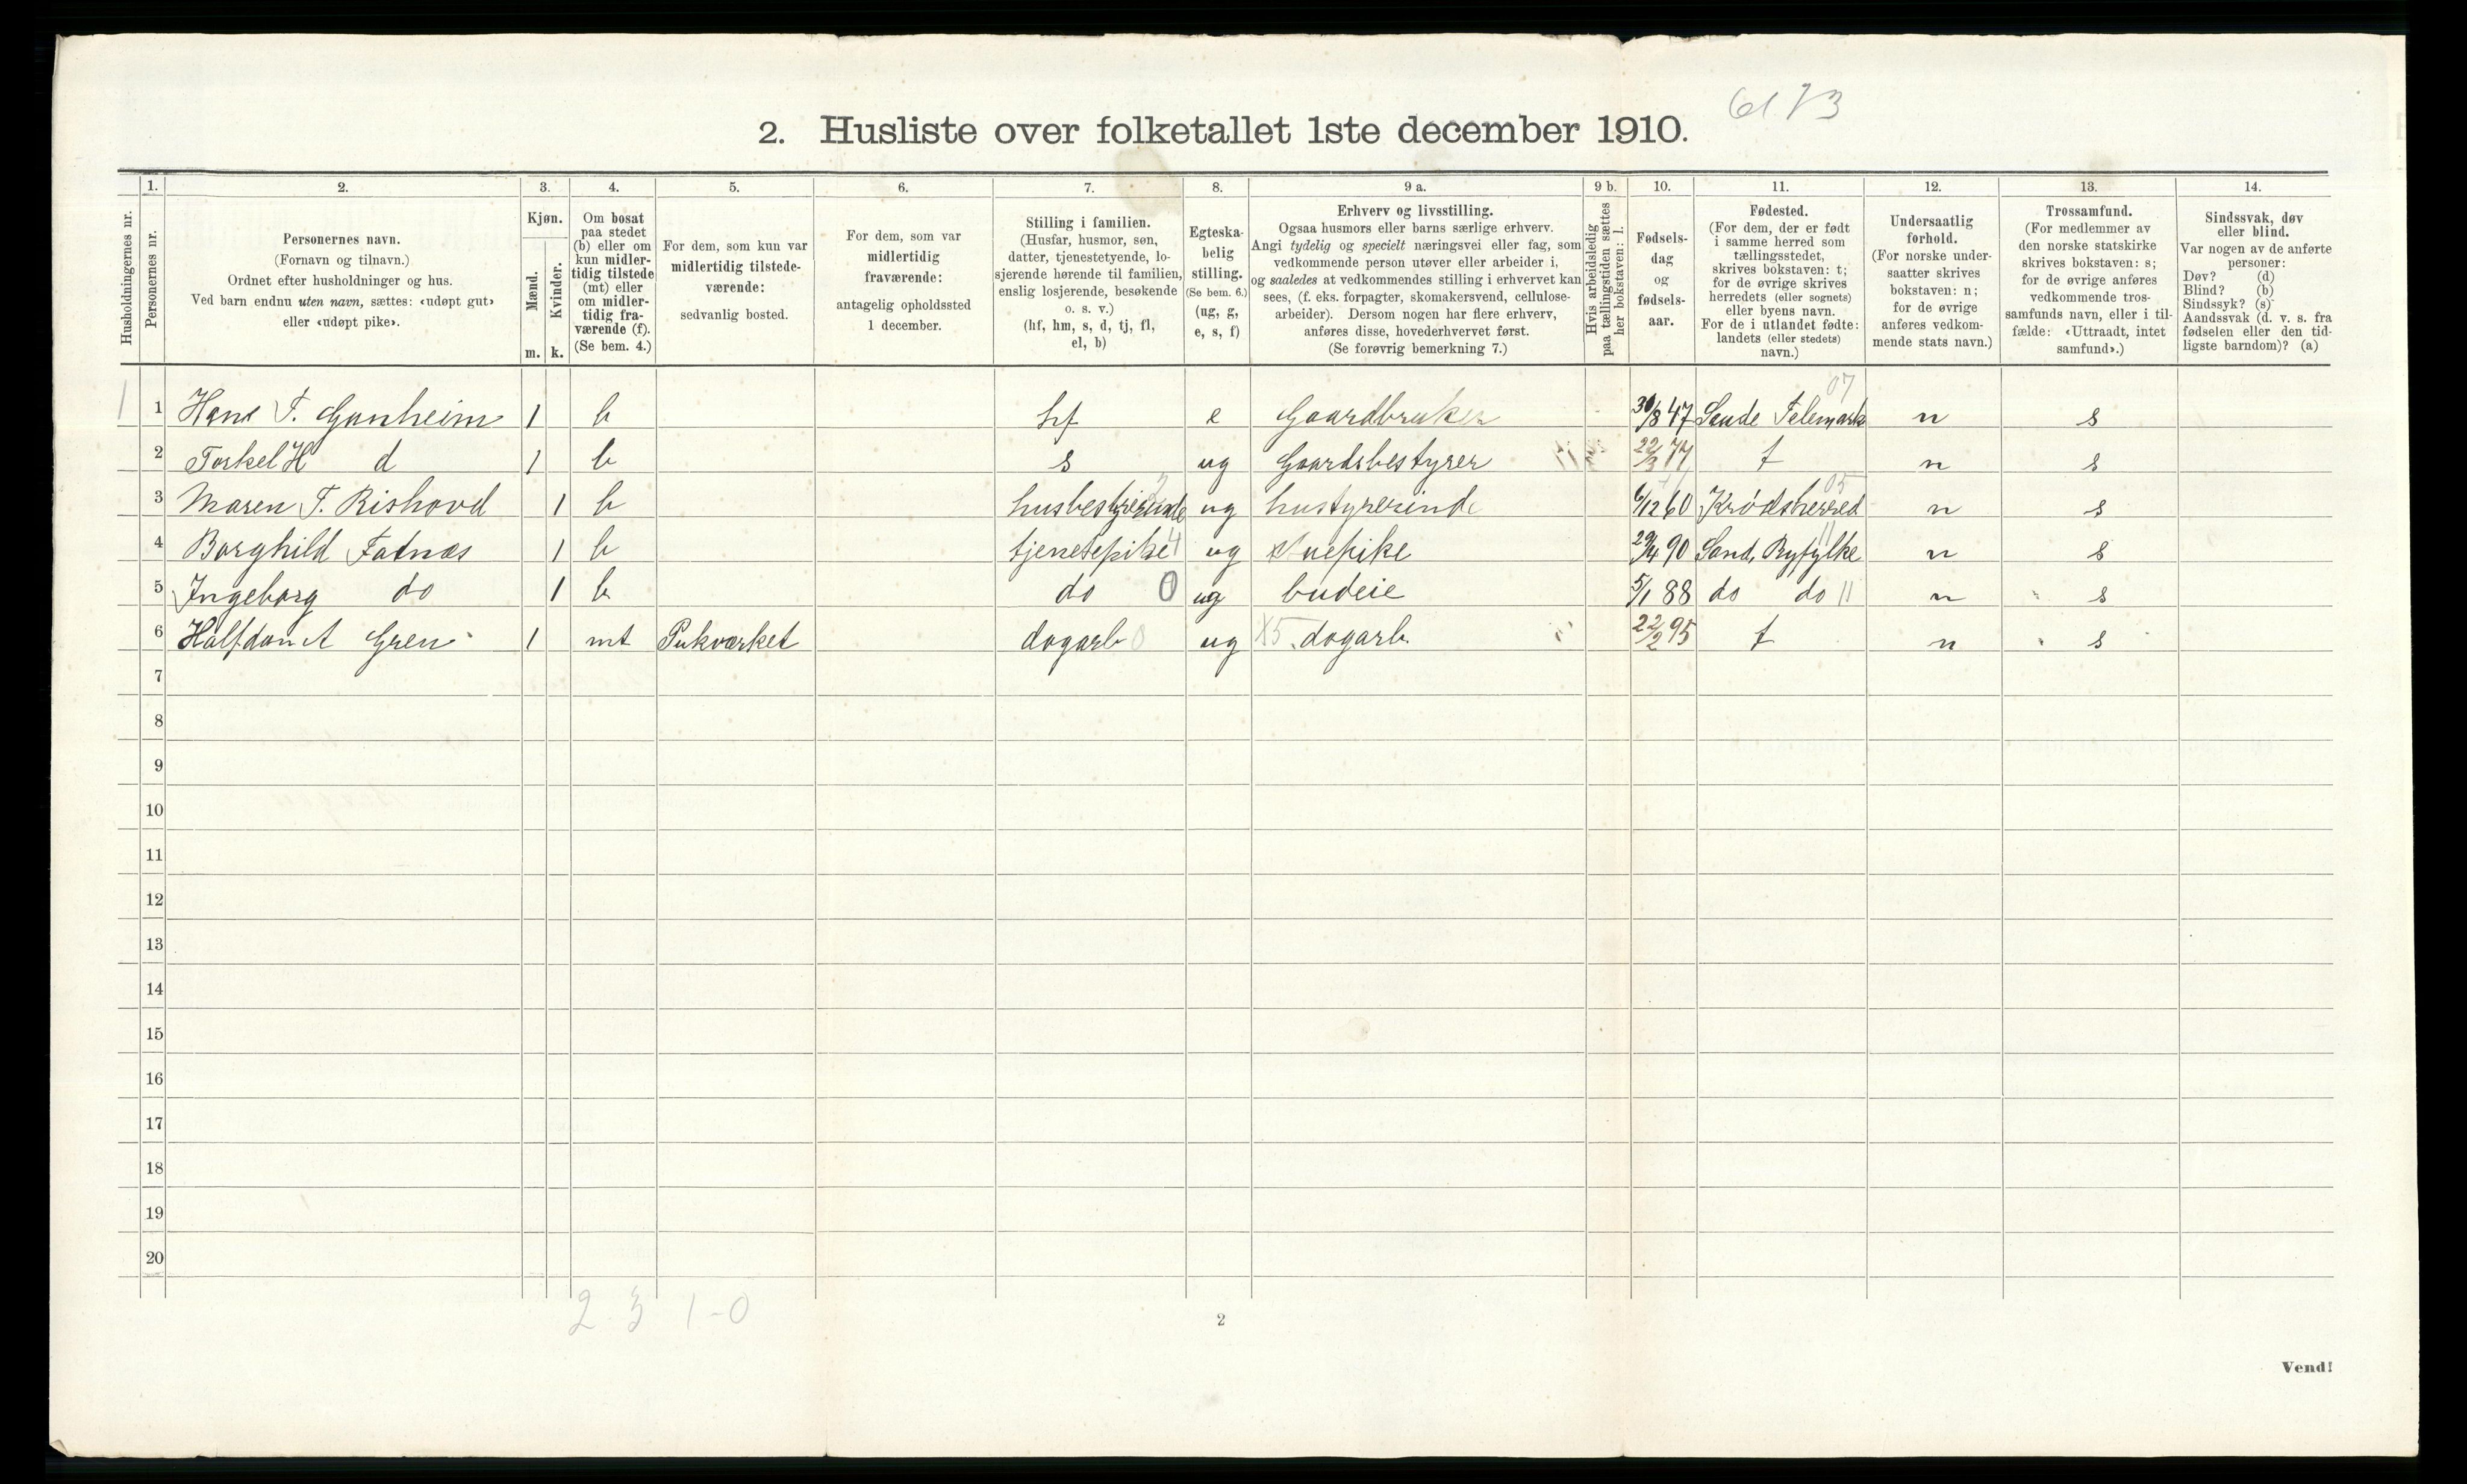 6173
2. Husliste over folketallet 1ste december 1910.
1. 2. 3. 4. 5. 6. 7. 8. 9 a. 9 b. 10. 11. 12. 13. 14.
Husholdningernes nr.
Personernes nr.
Personernes navn.
(Fornavn og tilnavn.)
Ordnet efter husholdninger og hus.
Ved barn endnu uten navn, sættes: «udøpt gut»
eller «udøpt pike».
Kjøn.
Mænd.
Kvinder.
m. k.
Om bosat
paa stedet
(b) eller om
kun midler-
tidig tilstede
(mt) eller
om midler-
tidig fra-
værende (f).
(Se bem. 4.)
For dem, som kun var
midlertidig tilstede-
værende:
sedvanlig bosted.
For dem, som var
midlertidig
fraværende:
antagelig opholdssted
1 december.
Stilling i familien.
(Husfar, husmor, søn,
datter, tjenestetyende, lo-
sjerende hørende til familien,
enslig losjerende, besøkende
o. s. v.)
(hf, hm, s, d, tj, fl,
el, b)
Egteska-
belig
stilling.
(Se bem. 6.)
(ug, g,
e, s, f)
Erhverv og livsstilling.
Ogsaa husmors eller barns særlige erhverv.
Angi tydelig og specielt næringsvei eller fag, som
vedkommende person utøver eller arbeider i,
og saaledes at vedkommendes stilling i erhvervet kan
sees, (f. eks. forpagter, skomakersvend, cellulose-
arbeider). Dersom nogen har flere erhverv,
anføres disse, hovederhvervet først.
(Se forøvrig bemerkning 7.)
Hvis arbeidsledig
paa tællingstiden sættes
her bokstaven: l.
Fødsels-
dag
og
fødsels-
aar.
Fødested.
(For dem, der er født
i samme herred som
tællingsstedet,
skrives bokstaven: t;
for de øvrige skrives
herredets (eller sognets)
eller byens navn.
For de i utlandet fødte:
landets (eller stedets)
navn.)
Undersaatlig
forhold.
(For norske under-
saatter skrives
bokstaven: n;
for de øvrige
anføres vedkom-
mende stats navn.)
Trossamfund.
(For medlemmer av
den norske statskirke
skrives bokstaven: s;
for de øvrige anføres
vedkommende tros-
samfunds navn, eller i til-
fælde: «Uttraadt, intet
samfund».)
Sindssvak, døv
eller blind.
Var nogen av de anførte
personer:
Døv? (d)
Blind? (b)
Sindssyk? (s)
Aandssvak (d. v. s. fra
fødselen eller den tid-
ligste barndom)? (a)
07
1 1 Hans T. Gunheim 1 b hf e Gaardbruker 30/8 47 Saude Telemark n s
2 Torkel H d 1 b s ug Gaardsbestyrer 22/3 77 t n s
05
3 Maren T. Rishovd 1 b husbestyrerinde ug hustyrerinde 6/12 60 Krødsherred n s
4 Borghild Fatnæs 1 b tjenestepike 4 ug stuepike 29/4 90 Sand, Ryfylke 11 n s
5 Ingeborg do 1 b do 0 ug budeie 5/1 88 do do 11 n s
6 Halfdan A Gren 1 mt Pukværket dagarb 0 ug X5 dagarb. 22/2 95 t n s
7
8
9
10
11
12
13
14
15
16
17
18
19
20
2 3 1-0
2
Vend!